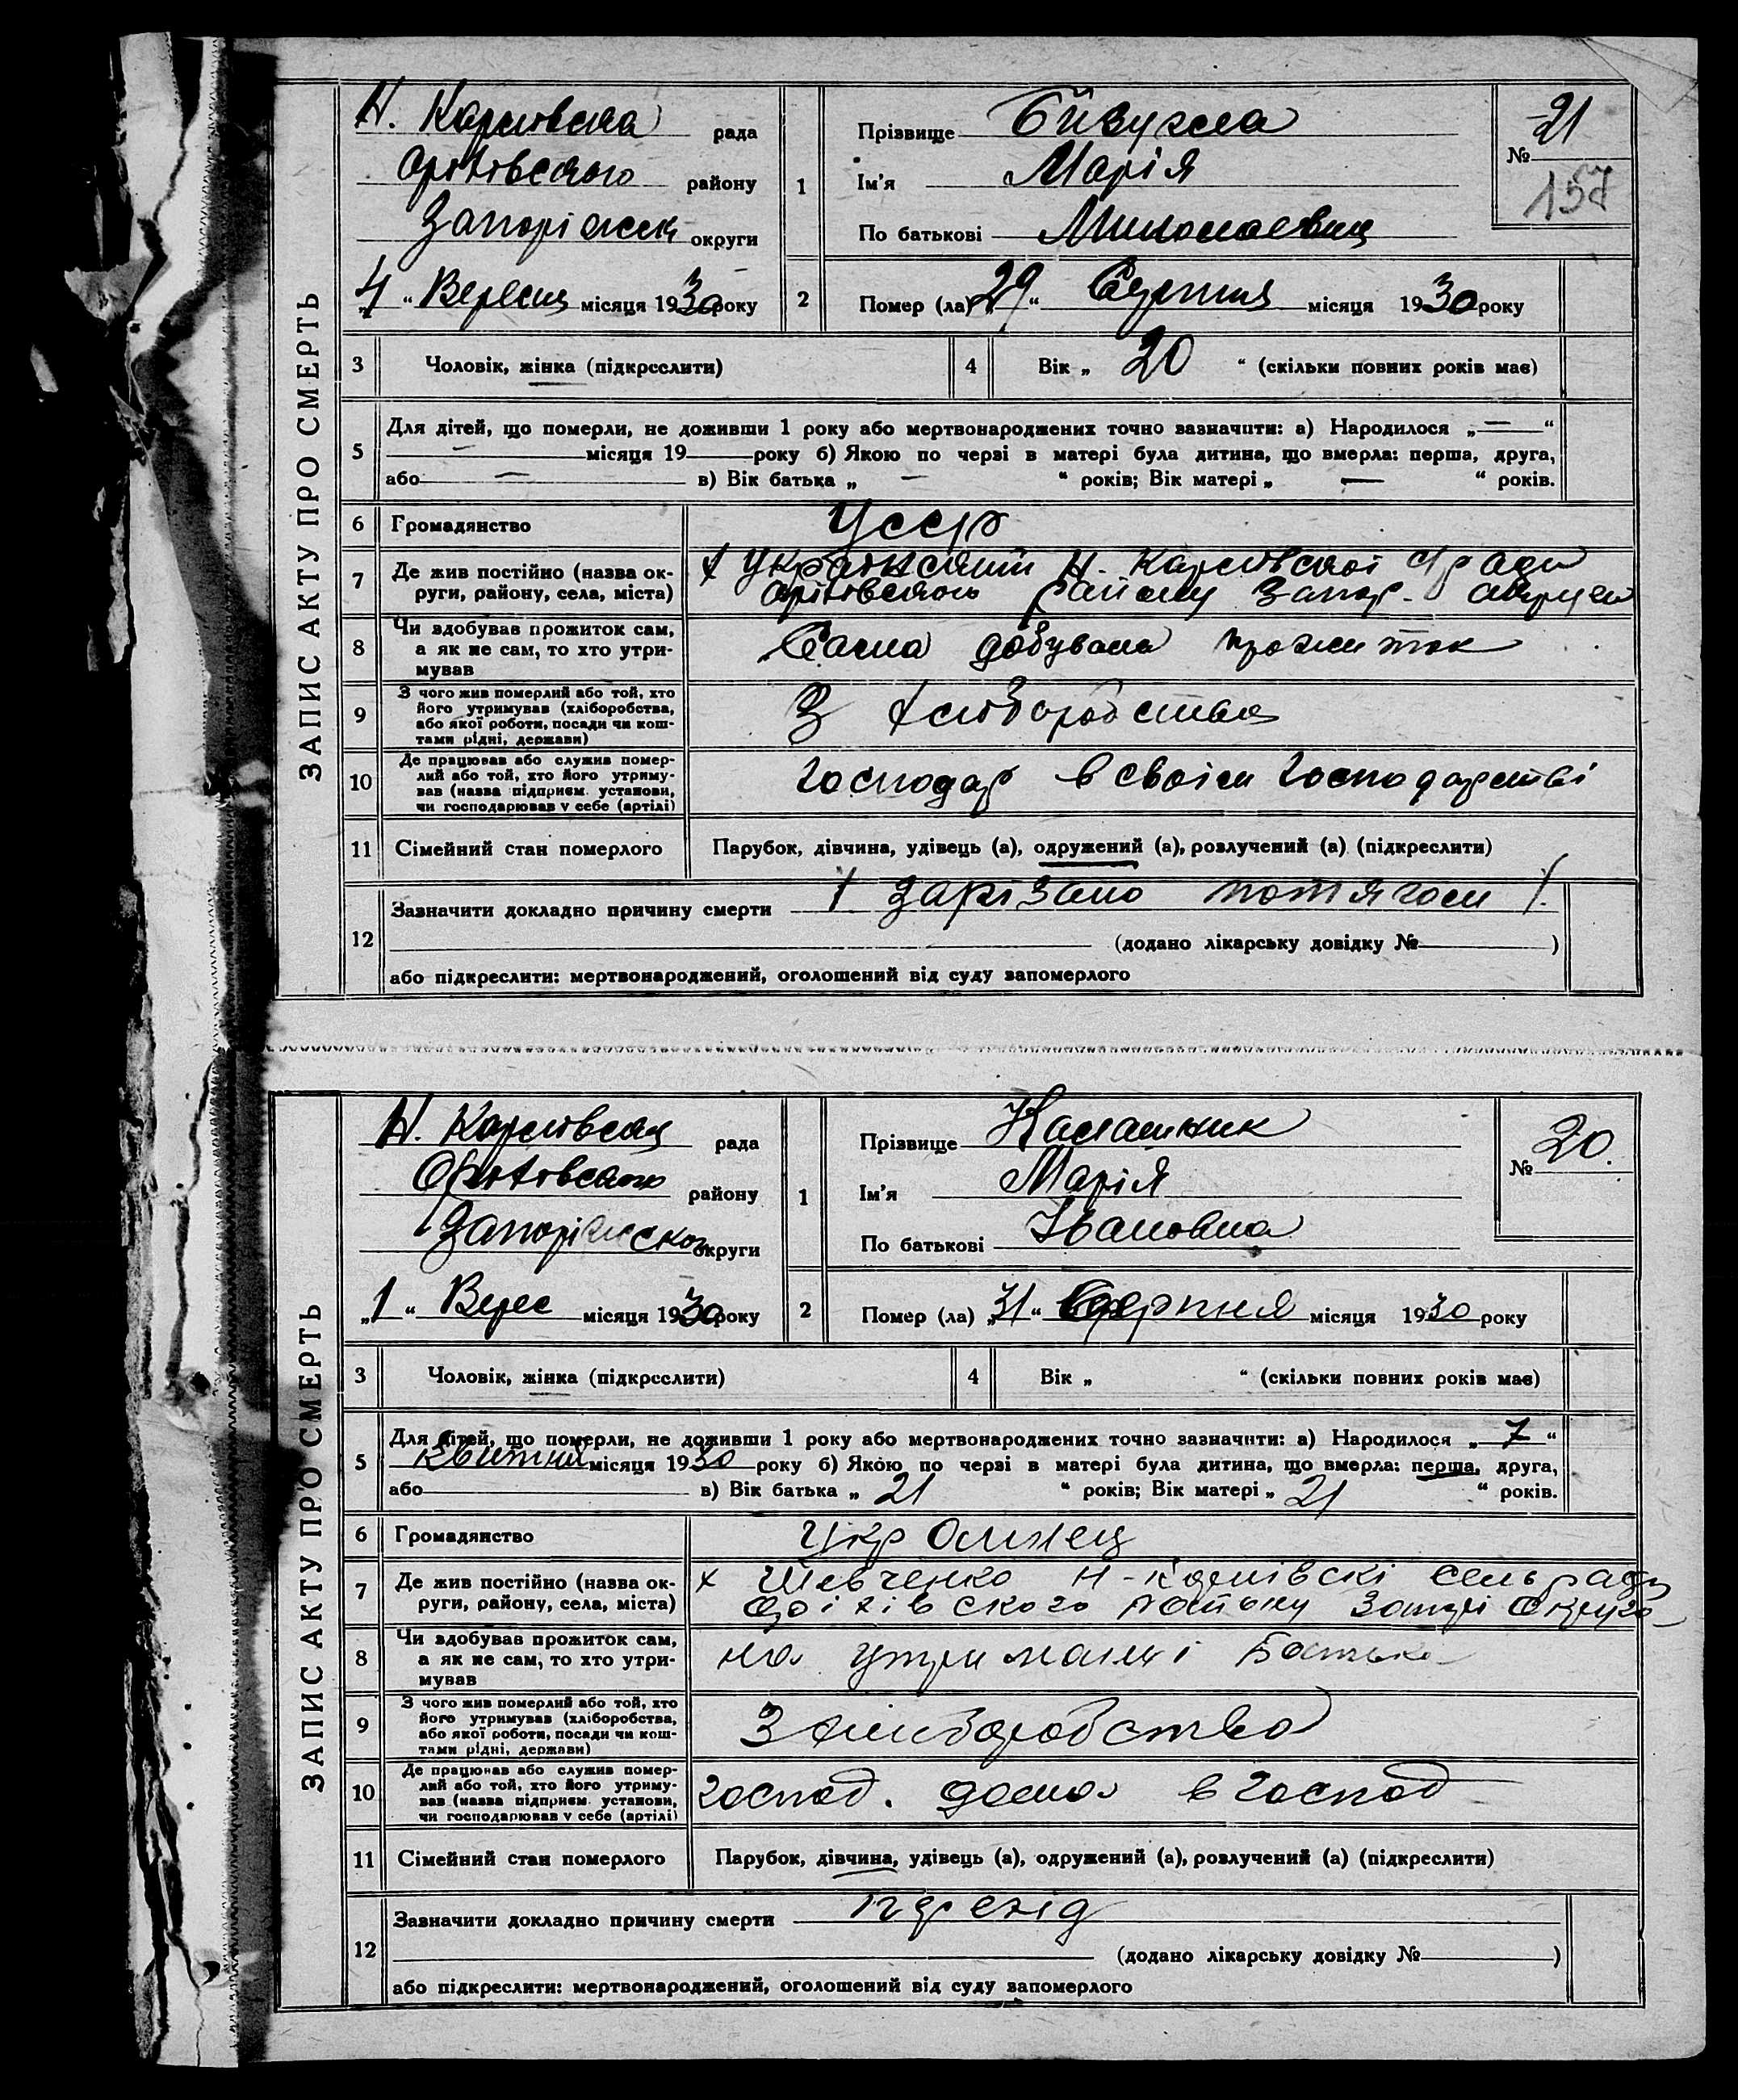 ЗАПИС АКТУ ПРО СМЕРТЬ
Н. Карловска рада
Оріховського району
Запоріжськ округи
„4“ Вересня місяця 1930 року
1
Прізвище
Ім'я Марія
По батькові Миколаевна
№ 21
157
2
Помер (ла) „29“ Серпня місяця 1930 року
3
Чоловік, жінка (підкреслити)
4
Вік „ 20 “ (скільки повних років має)
5
Для дітей, що померли, не доживши 1 року або мертвонароджених точно зазначити: а) Народилося „—“
— місяця 19 року б) Якою по черзі в матері була дитина, що вмерла: перша, друга,
або — в) Вік батька „ — “ років; Вік матері „ — “ років.
6
Громадянство
УССР
7
Де жив постійно (назва ок-
руги, району, села, міста)
х Український Н. Карлівскоі с/ради
Оріховського району Запор. округи
8
Чи здобував прожиток сам,
а як не сам, то хто утри-
мував
Сама добувала прожиток
9
З чого жив померлий або той, хто
його утримував (хліборобства,
або якої роботи, посади чи кош-
тами рідні, держави)
З хліборобства
10
Де працював або служив помер-
лий або той, хто його утриму-
вав (назва підприєм. установи,
чи господарював у себе (артілі)
Господар в своім Господарстві
11
Сімейний стан померлого
Парубок, дівчина, удівець (а), одружений (а), розлучений (а) (підкреслити)
12
Зазначити докладно причину смерти / зарізано потягом /.
(додано лікарську довідку № )
або підкреслити: мертвонароджений, оголошений від суду запомерлого
ЗАПИС АКТУ ПРО СМЕРТЬ
Н. Карловска рада
Оріховського району
Запоріжскої округи
„1“ Верес місяця 1930 року
1
Прізвище Калашник
Ім'я Марія
По батькові Івановна
№ 20.
2
Помер (ла) „31“ Серпня місяця 1930 року
3
Чоловік, жінка (підкреслити)
4
Вік „ “ (скільки повних років має)
5
Для дітей, що померли, не доживши 1 року або мертвонароджених точно зазначити: а) Народилося „7“
квитня місяця 1930 року б) Якою по черзі в матері була дитина, що вмерла: перша, друга,
або в) Вік батька „ 21 “ років; Вік матері „ 21 “ років.
6
Громадянство
7
Де жив постійно (назва ок-
руги, району, села, міста)
х Шевченко Н-карлівскі сельради
Оріхівского району Запорі округа
8
Чи здобував прожиток сам,
а як не сам, то хто утри-
мував
на утриманні Батька
9
З чого жив померлий або той, хто
його утримував (хліборобства,
або якої роботи, посади чи кош-
тами рідні, держави)
З хлиборобства
10
Де працював або служив помер-
лий або той, хто його утриму-
вав (назва підприєм. установи,
чи господарював у себе (артілі)
господ. дома в господ
11
Сімейний стан померлого
Парубок, дівчина, удівець (а), одружений (а), розлучений (а) (підкреслити)
12
Зазначити докладно причину смерти
(додано лікарську довідку № )
або підкреслити: мертвонароджений, оголошений від суду запомерлого